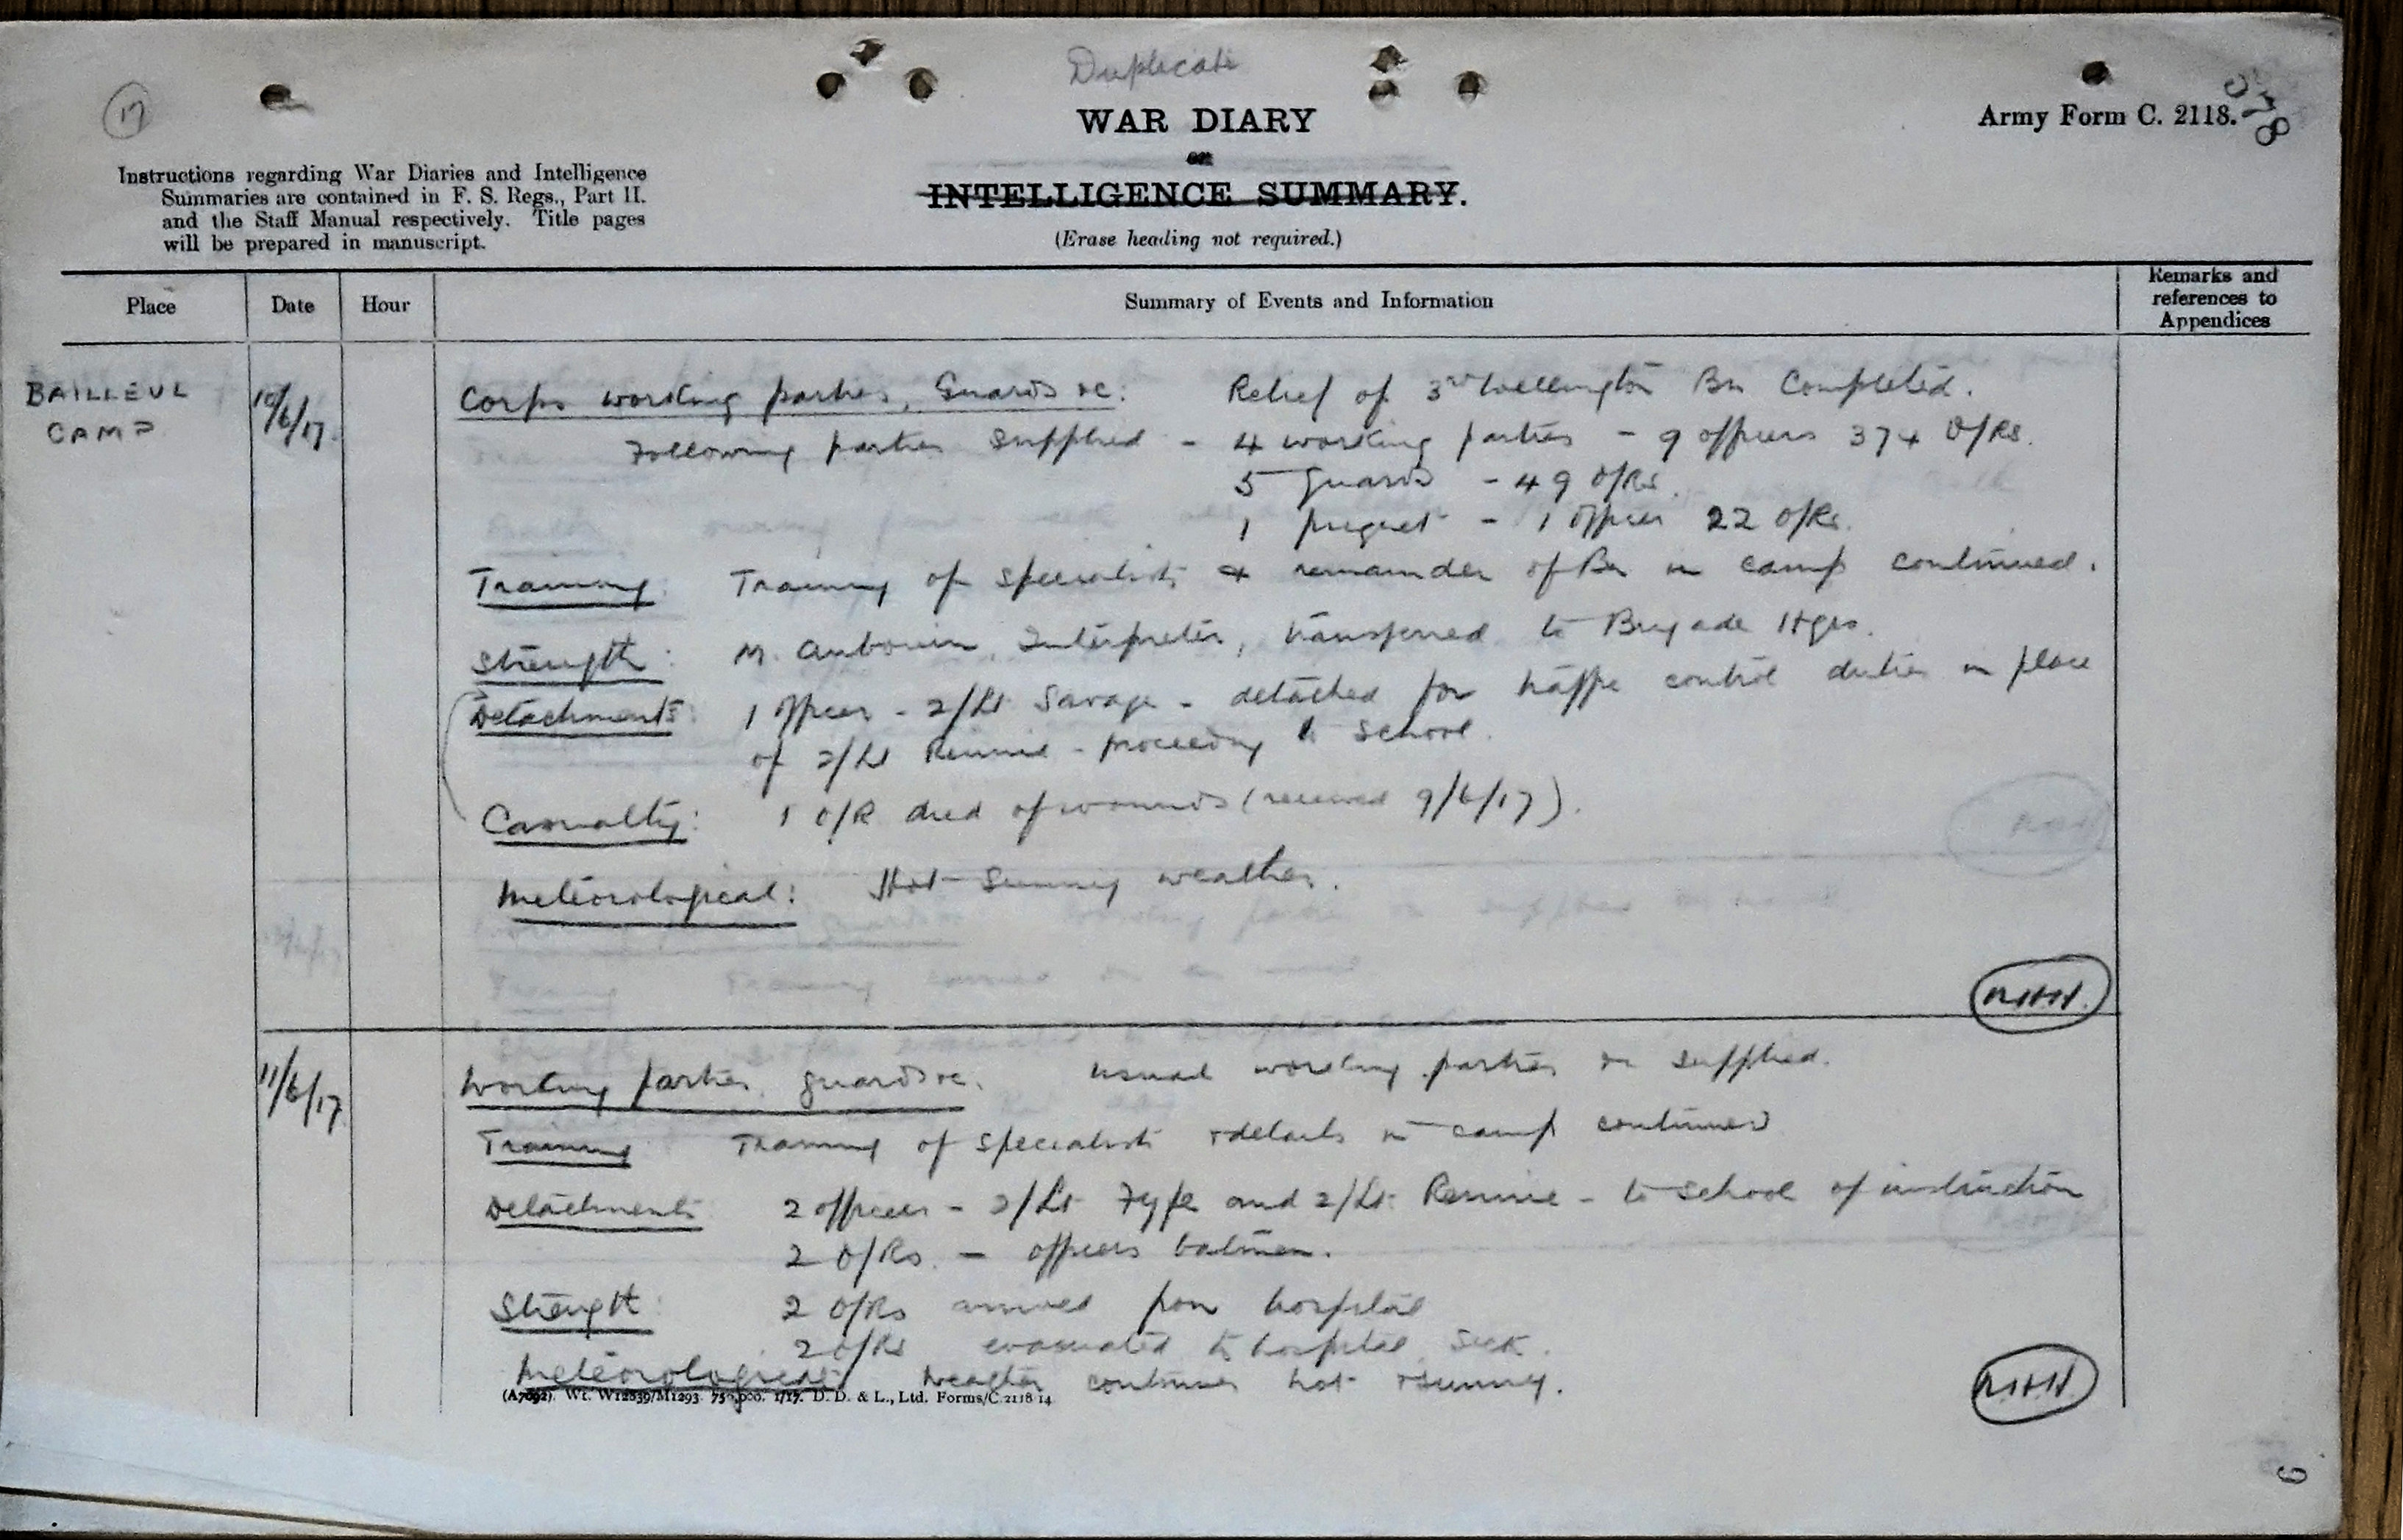 Duplicate
17
WAR DIARY
or
INTELLIGENCE SUMMARY.
(Erase heading not required.)
Army Form C. 2118.
Instructions regarding War Diaries and Intelligence
Summaries are contained in F. S. Regs., Part II.
and the Staff Manual respectively. Title pages
will be prepared in manuscript.
Place Date Hour Summary of Events and Information Remarks and references to Appendices
BAILLEUL
CAMP
10/6/17
Corps working parties, Guards &c: Relief of 3rd Wellington Bn Completed.
Following parties supplied - 4 working parties - 9 officers 374 O/Rs.
5 guards - 49 O/Rs.
1 picquet - 1 officer 22 O/Rs.
Training: Training of specialists & remainder of Bn in camp continued.
Strength: M. Interpreter, transferred to Brigade Hqrs.
Detachments: 1 officer - 2/Lt Savage - detached for traffic control duties in place
of 2/Lt Rennie - proceeding to school.
Casualty: 1 O/R died of wounds (received 9/6/17).
Meteorological: Hot sunny weather.
11/6/17
Working parties, guards &c. Usual working parties &c supplied.
Training Training of specialists & details in camp continued
Detachments 2 officers - 2/Lt Fyfe and 2/Lt Rennie - to school of instruction
2 O/Rs. - officers batmen.
Strength: 2 O/Rs arrived from hospital
2 O/Rs evacuated to hospital sick.
Meteorological Weather continues hot & sunny.
(A7092). Wt. W12839/M1293. 750,000. 1/17. D. D. & L., Ltd. Forms/C.2118 14